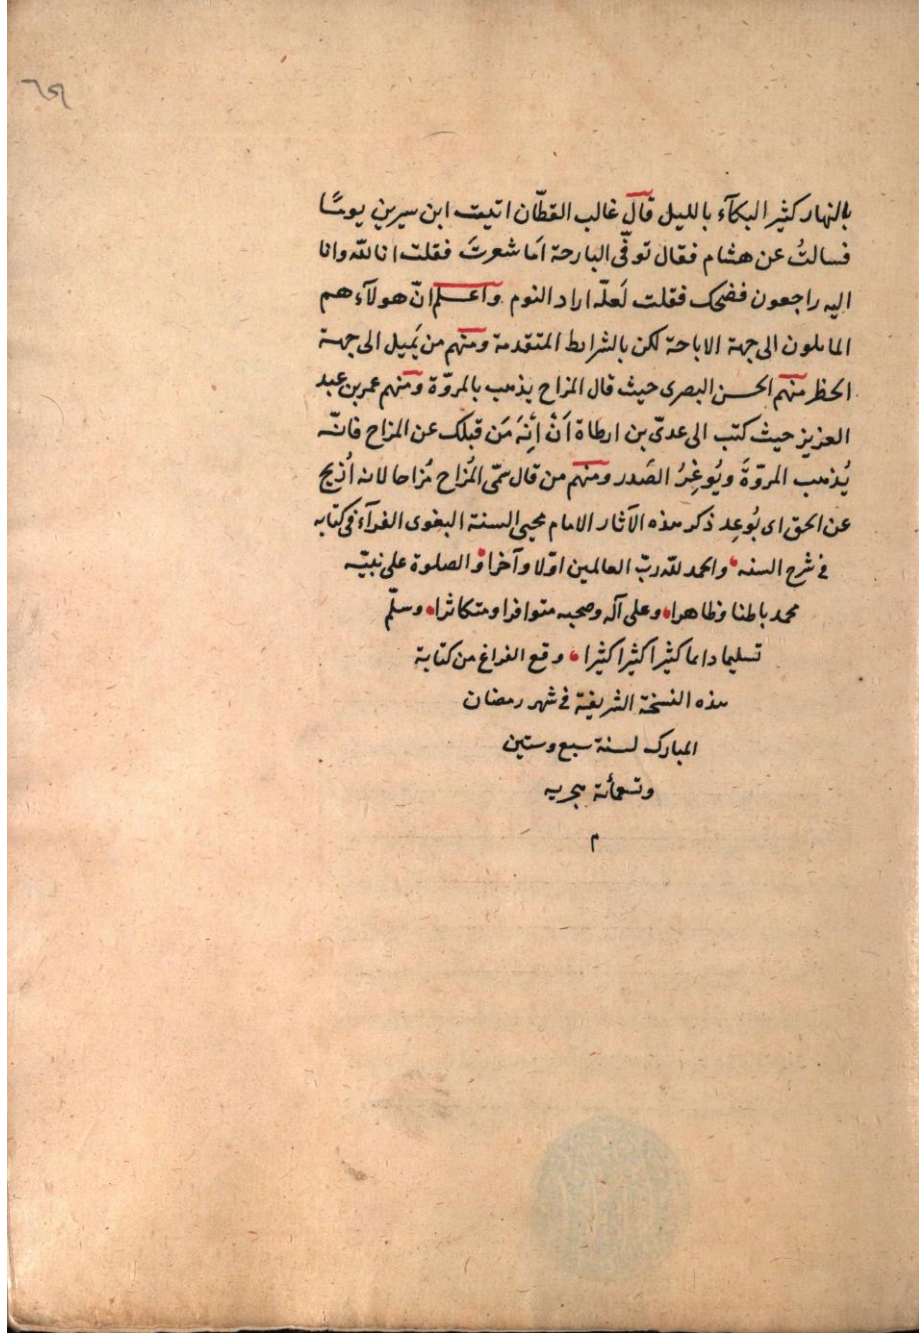 ٦٩
بالنهار كثير البكآء بالليل قال غالب القطّان اتيت ابن سيرين يومًا
فسالتُ عن هشام فقال توفّى البارحة اَما شعرتَ فقلت انا لله وانا
اليه راجعون فضحك فقلت لَعلّه اراد النوم واعلم انّ هولآء هم
المايلون الى جهة الاباحة لكن بالشرايط المتقدمة ومنهم من يَميل الى جهة
الحظر منهم الحسن البصرى حيث قال المزاح يذهب بالمروّة ومنهم عمر بن عبد
العزيز حيث كتب الى عدىّ بن ارطاة اَنْ اِنْهَ مَن قبلك عن المزاح فانّه
يُذهب المروّةَ ويُوغِرُ الصَدر ومنهم من قال سمّى المُزاح مُزاحا لانه اُزيح
عن الحق اى بُوعِد ذكر هذه الآثار الامام محيى السنة البغوى الفرآء فى كتابه
فى شرح السنه والحمد لله ربّ العالمين اوّلا وآخرا والصلوة على نبيّه
محمد باطنا وظاهرا وعلى آله وصحبه متوافرا ومتكاثرا وسلّم
تسليما دايما كثيرا كثيرا كثيرا وقع الفراغ من كتابة
هذه النسخة الشريفة فى شهر رمضان
المبارك لسنة سبع وستين
وتسعمأئة هجريه
م